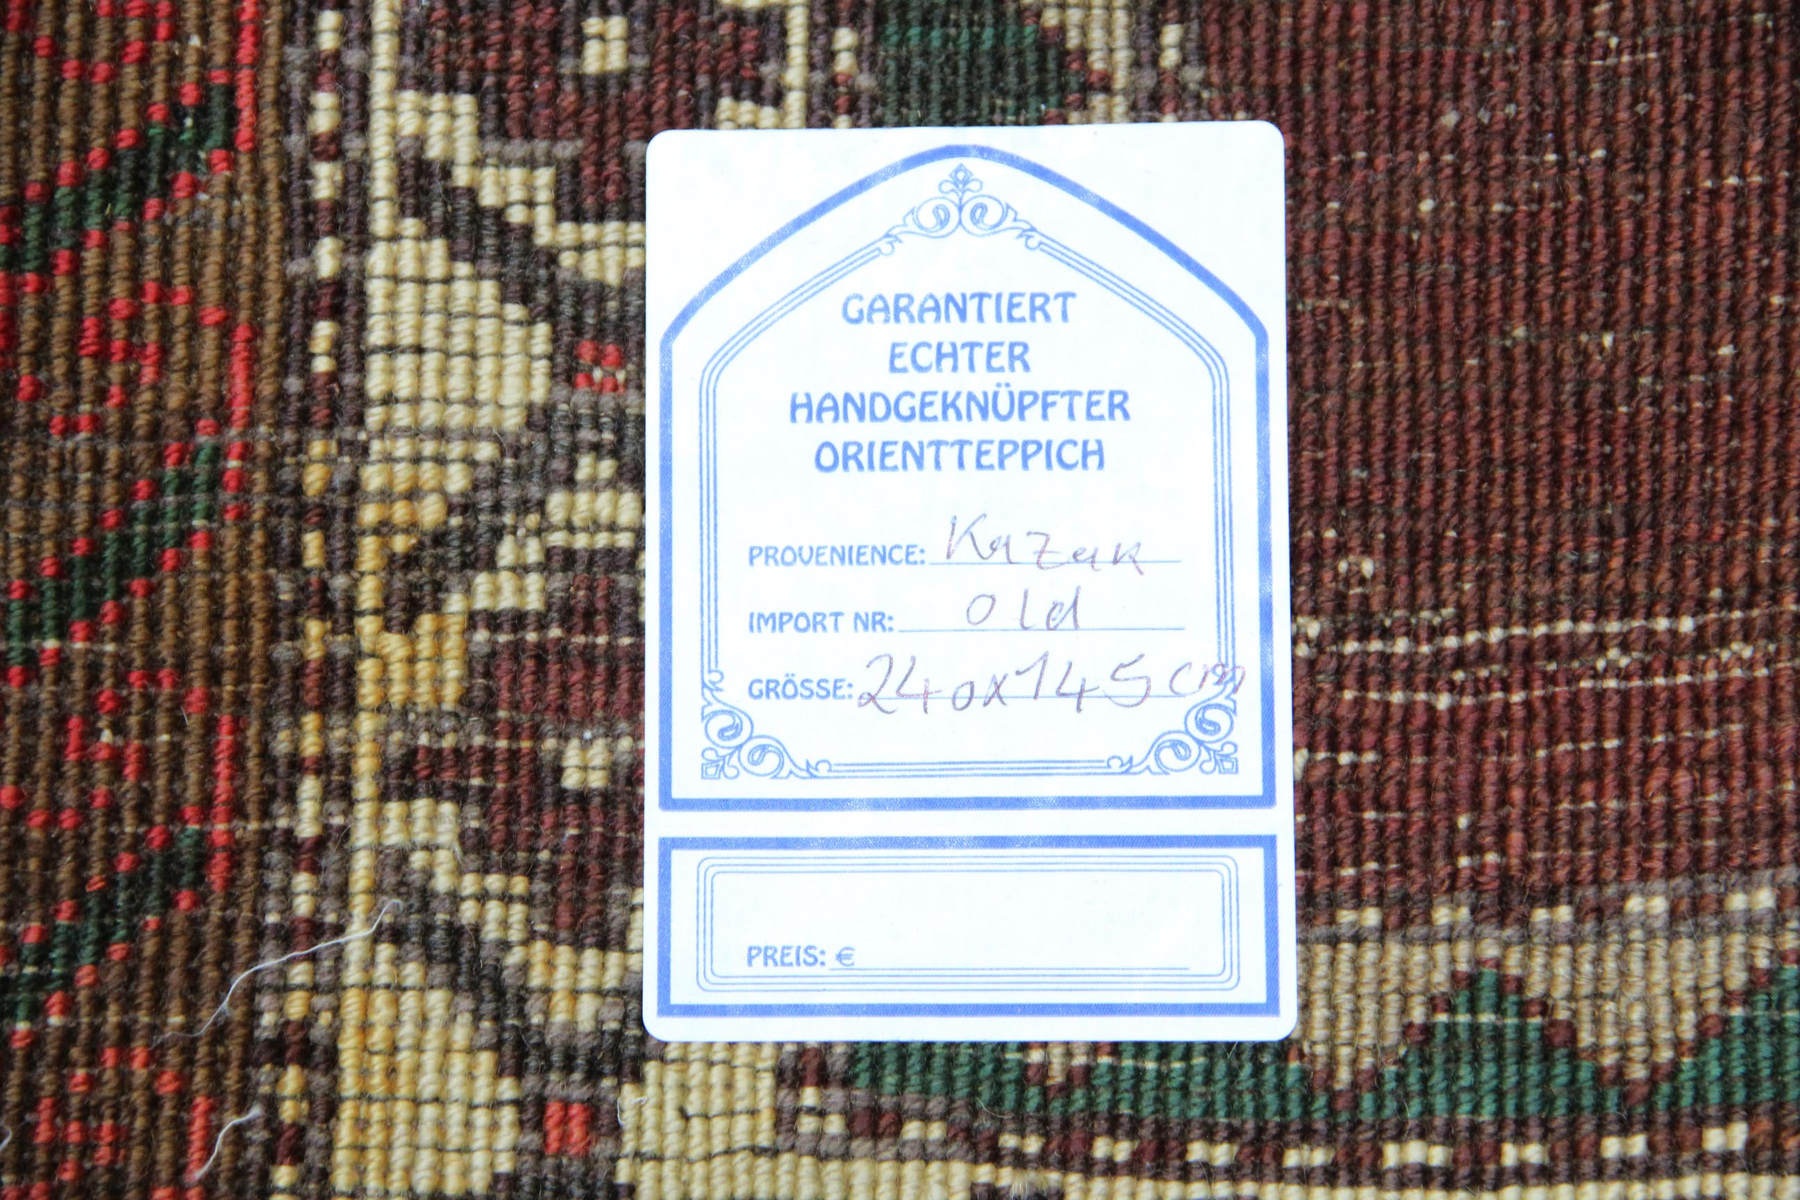 GARANTIERT
ECHTER
HANDGEKNÜPFTER
ORIENTTEPPICH
PROVENIENCE: Kazak
IMPORT NR: old
GRÖSSE: 240x145 cm
PREIS: €